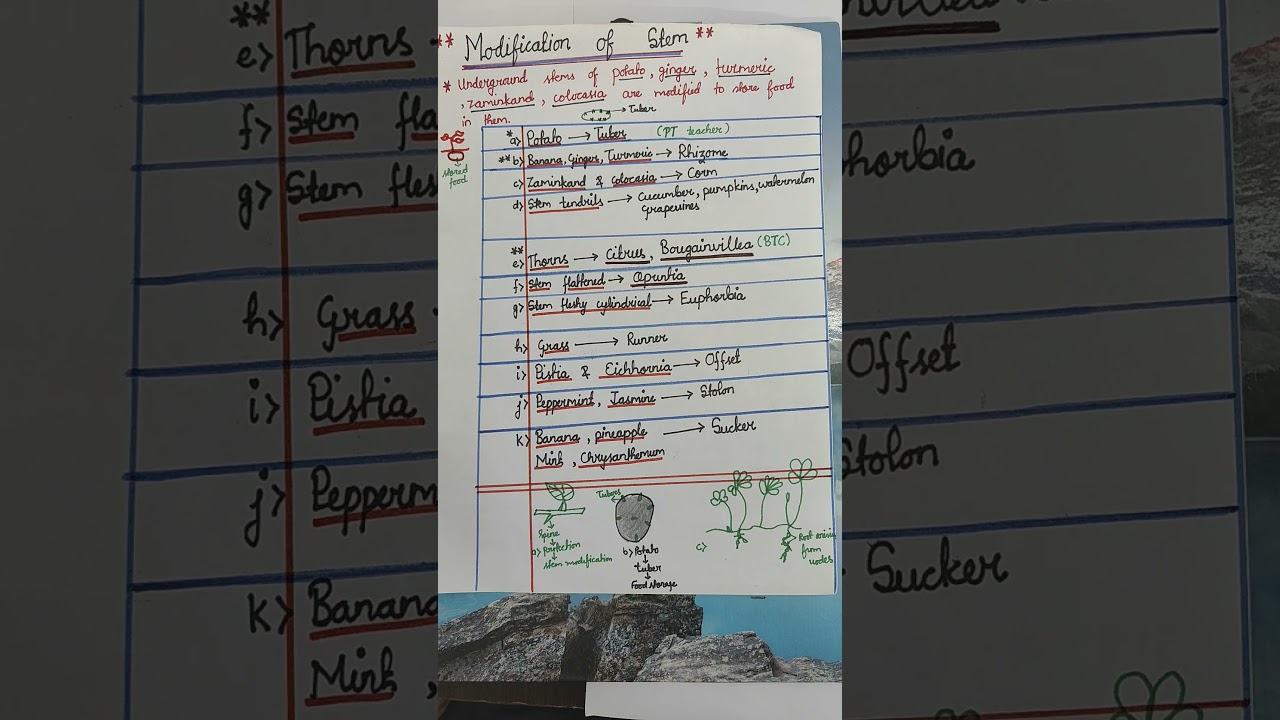 ** Modification of Stem **
* Underground stems of potato, ginger, turmeric
, zaminkand, colocasia are modified to store food
in them.
→ Tuber
stored
food
* a> Potato → Tuber (PT teacher)
** b> Banana, Ginger, Turmeric → Rhizome
c> Zaminkand & colocasia → Corm
d> Stem tendrils → Cucumber, pumpkins, watermelon
grapevines
**
e> Thorns → Citrus, Bougainvillea (BTC)
f> Stem flattened → Opuntia
g> Stem fleshy cylindrical → Euphorbia
h> Grass → Runner
i> Pistia & Eichhornia → Offset
j> Peppermint, Jasmine → Stolon
k> Banana, pineapple → Sucker
Mint, Chrysanthemum
Spine
a> Protection
stem modification
Tubers
b> Potato
tuber
Food storage
c>
Root arising
from
nodes
**
e> Thorns
f> Stem fla
g> Stem fles
h> Grass
i> Pistia
j> Pepperm
k> Banana
Mint,
horbia
Offset
Stolon
Sucker